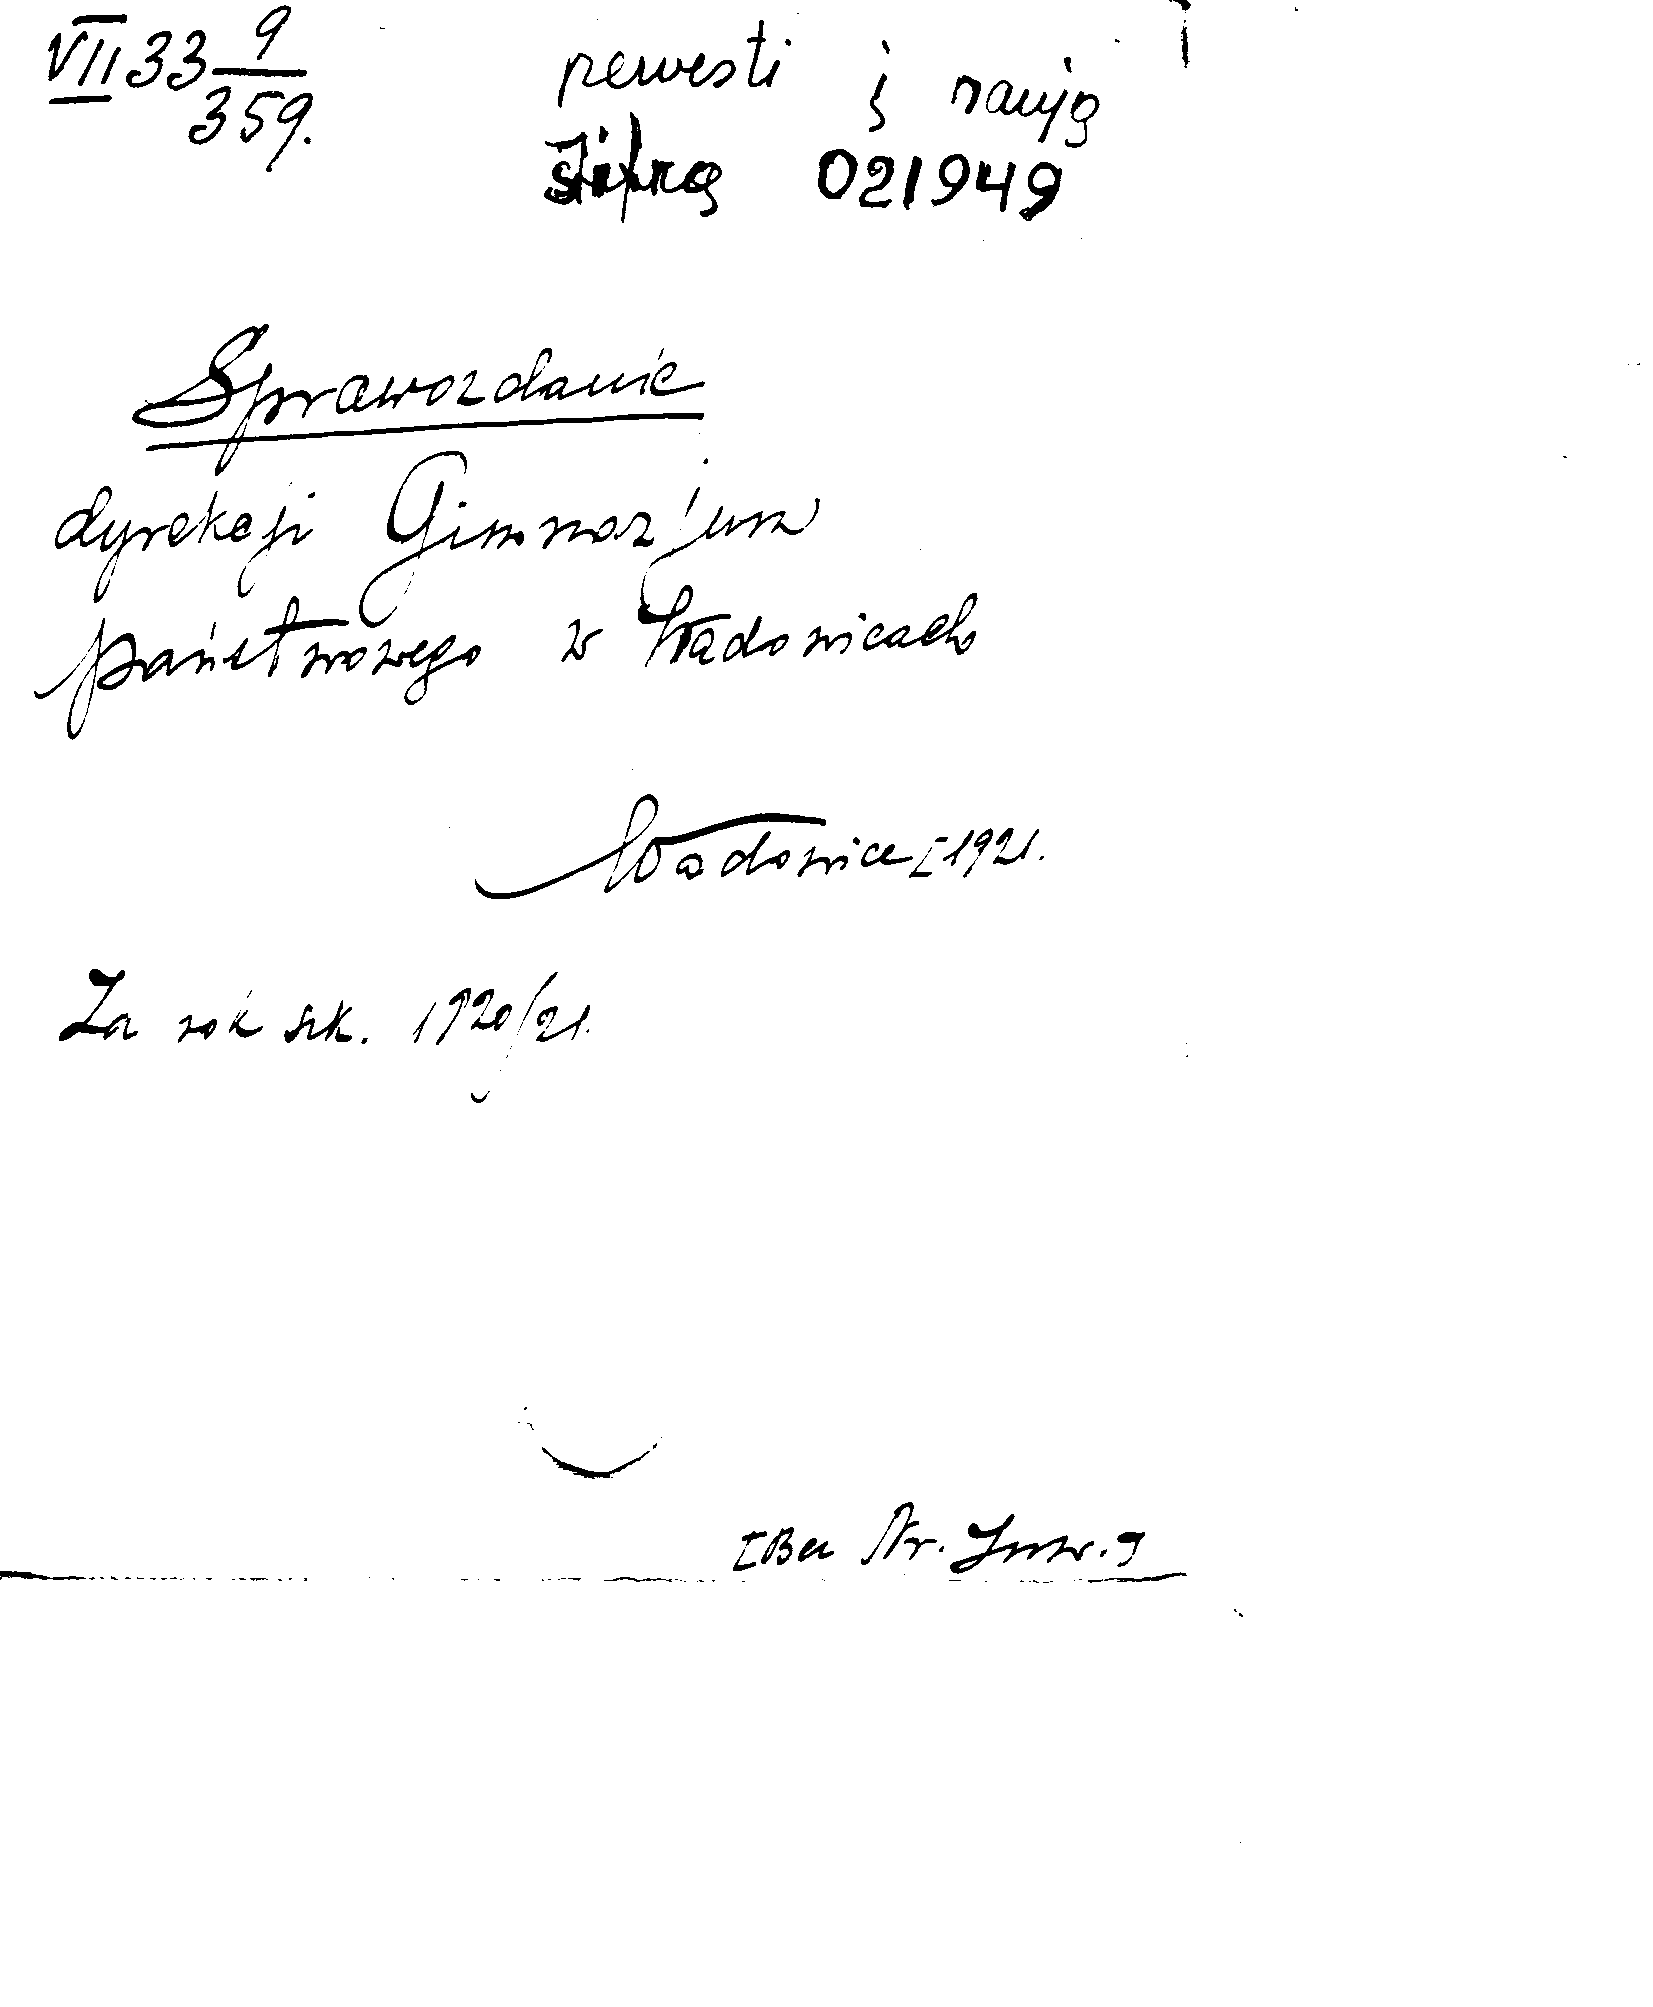 VII 33 9/359.
pervesti į naują
šifrą 021949
Sprawozdanie
dyrekcji Gimnazjum
państwowego w Wadowicach
Wadowice [1921.
Za rok szk. 1920/21.
Nr. Inw.